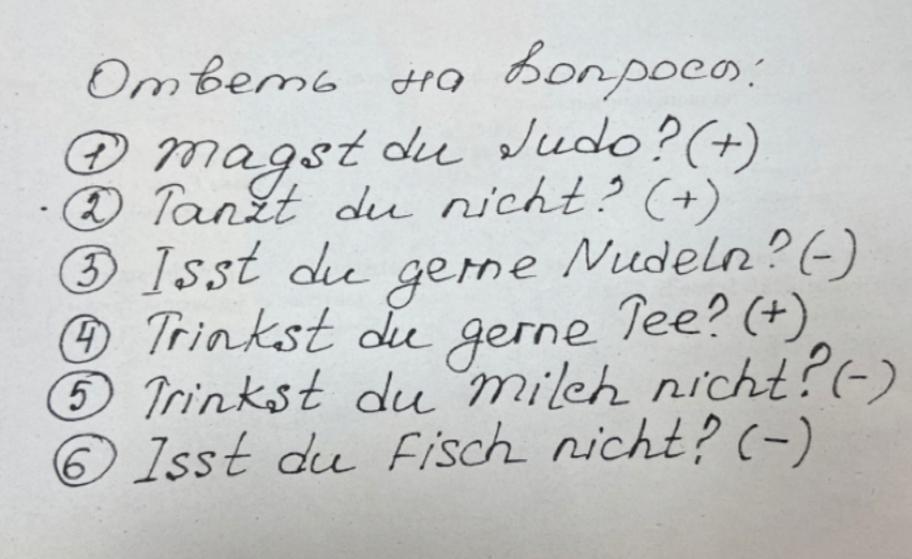 Ответь на вопросы:
① Magst du Judo? (+)
② Tanzt du nicht? (+)
③ Isst du gerne Nudeln? (-)
④ Trinkst du gerne Tee? (+)
⑤ Trinkst du Milch nicht? (-)
⑥ Isst du Fisch nicht? (-)